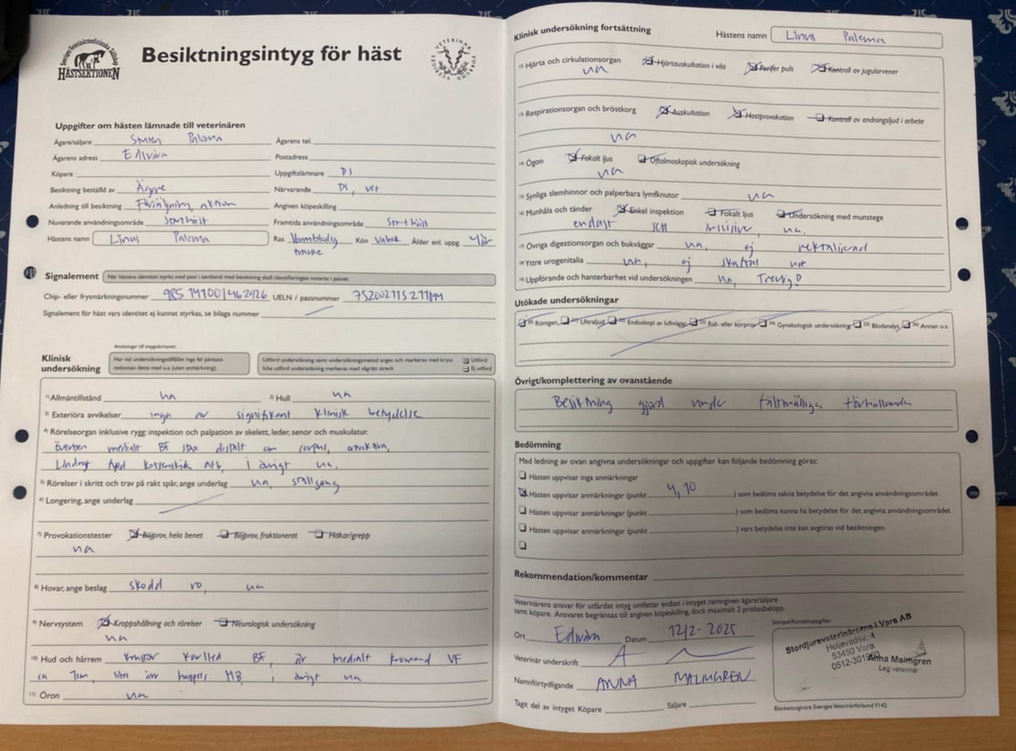 HÄSTSEKTIONEN
Besiktningsintyg för häst
Uppgifter om hästen lämnade till veterinären
Ägare/säljare Paloma
Ägarens tel.
Ägarens adress
Postadress
Köpare
Uppgiftslämnare DI
Besiktning beställd av Ägare
Närvarande DI, vet
Anledning till besiktning Försäljning, auktion
Angiven köpeskilling
Nuvarande användningsområde Starthäst
Framtida användningsområde Starthäst
Hästens namn Linus Paloma
Ras Varmblodig travare Kön Valack Ålder enl. uppg.
Signalement
När hästens identitet styrks med pass i samband med besiktning skall identifieringen noteras i passet.
Chip- eller frysmärkningsnummer UELN / passnummer
Signalement för häst vars identitet ej kunnat styrkas, se bilaga nummer
Anvisningar till intygsskrivaren:
Klinisk undersökning
Har vid undersökningstillfället inga fel påvisats redovisas detta med u.a. (utan anmärkning).
Utförd undersökning samt undersökningsmetod anges och markeras med kryss
Icke utförd undersökning markeras med vågrätt streck
Utförd
Ej utförd
1) Allmäntillstånd ua
2) Hull ua
3) Exteriöra avvikelser inga av signifikant klinisk betydelse
4) Rörelseorgan inklusive rygg: inspektion och palpation av skelett, leder, senor och muskulatur.
medialt BF distalt om
i övrigt ua.
5) Rörelser i skritt och trav på rakt spår, ange underlag ua, stallgång
6) Longering, ange underlag
7) Provokationstester Böjprov, hela benet Böjprov, fraktionerat Hakor/grepp
ua
8) Hovar, ange beslag skodd ua
9) Nervsystem Kroppshållning och rörelser Neurologisk undersökning
ua
10) Hud och hårrem BF, är medialt VF
ca HB, i övrigt ua
11) Öron ua
Klinisk undersökning fortsättning
Hästens namn Linus Paloma
12) Hjärta och cirkulationsorgan Hjärtauskultation i vila Perifer puls Kontroll av jugularvener
ua
13) Respirationsorgan och bröstkorg Auskultation Hostprovokation Kontroll av andningsljud i arbete
ua
14) Ögon Fokalt ljus Oftalmoskopisk undersökning
ua
15) Synliga slemhinnor och palperbara lymfknutor ua
16) Munhåla och tänder Enkel inspektion Fokalt ljus Undersökning med munstege
endast incisive, ua.
17) Övriga digestionsorgan och bukväggar ua, ej rektaliserad
18) Yttre urogenitalia ua, ej
19) Uppförande och hanterbarhet vid undersökningen ua, Trevlig!
Utökade undersökningar
20) Röntgen, 21) Ultraljud 22) Endoskopi av luftvägar 23) Rid- eller körprov 24) Gynekologisk undersökning 25) Blodanalys 26) Annan u.s.
Övrigt/komplettering av ovanstående
Besiktning gjord under fältmässiga förhållanden
Bedömning
Med ledning av ovan angivna undersökningar och uppgifter kan följande bedömning göras:
Hästen uppvisar inga anmärkningar
Hästen uppvisar anmärkningar (punkt 4, 10) som bedöms sakna betydelse för det angivna användningsområdet
Hästen uppvisar anmärkningar (punkt) som bedöms kunna ha betydelse för det angivna användningsområdet
Hästen uppvisar anmärkningar (punkt) vars betydelse inte kan avgöras vid besiktningen
Rekommendation/kommentar
Veterinärens ansvar för utfärdat intyg omfattar endast i intyget namngiven ägare/säljare
samt köpare. Ansvaret begränsas till angiven köpeskilling, dock maximalt 2 prisbasbelopp.
Ort Datum 12/2-2025
Stämpel/Kontaktuppgifter
Stordjursveterinärerna i Vara AB
53450 Vara
Anna Malmgren
Leg veterinär
Veterinär underskrift
Namnförtydligande ANNA MALMGREN
Tagit del av intyget Köpare Säljare
Blankettutgivare Sveriges Veterinärförbund F142